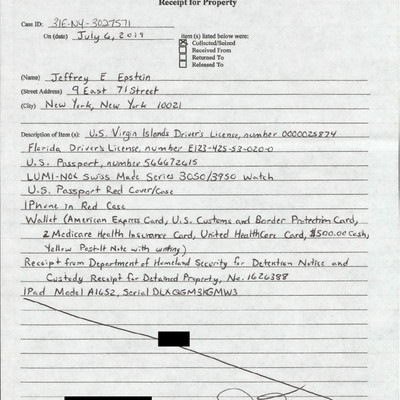 Receipt for Property
Case ID: 31E-NY-3027571
On (date) July 6, 2019
item (s) listed below were:
Collected/Seized
Received From
Returned To
Released To
(Name) Jeffrey E Epstein
(Street Address) 9 East 71 Street
(City) New York, New York 10021
Description of Item (s): U.S. Virgin Islands Driver's License, number 0000025874
Florida Driver's License, number E123-425-53-020-0
U.S. Passport, number 566672615
LUMI-NOX Swiss Made Series 3050/3950 Watch
U.S. Passport Red Cover/Case
IPhone in Red Case
Wallet (American Express Card, U.S. Customs and Border Protection Card,
2 Medicare Health Insurance Card, United HealthCare Card, $500.00 Cash,
Yellow Post-It Note with writing)
Receipt from Department of Homeland Security for Detention Notice and
Custody Receipt for Detained Property, No. 1626388
IPad Model A1652, Serial DLXQGM3KGMW3